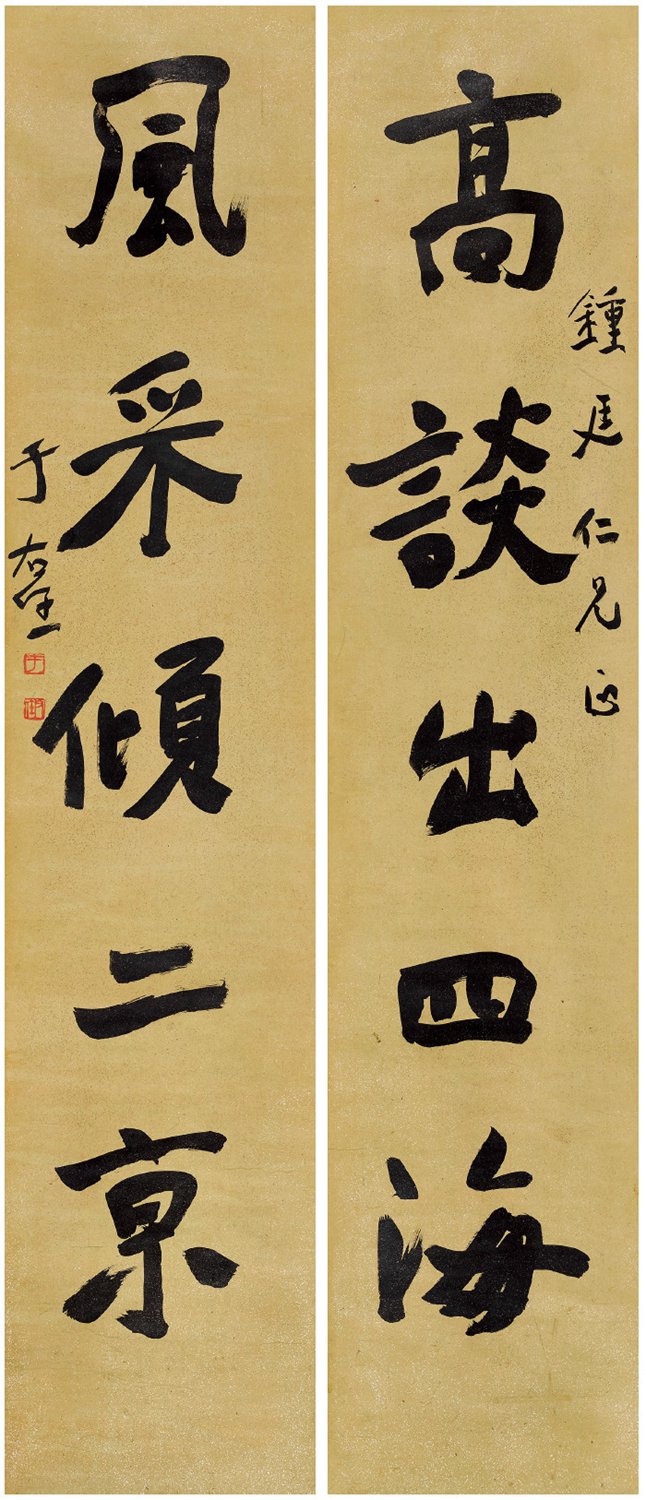 高談出四海
鍾廷仁兄正
風采傾二京
于右任